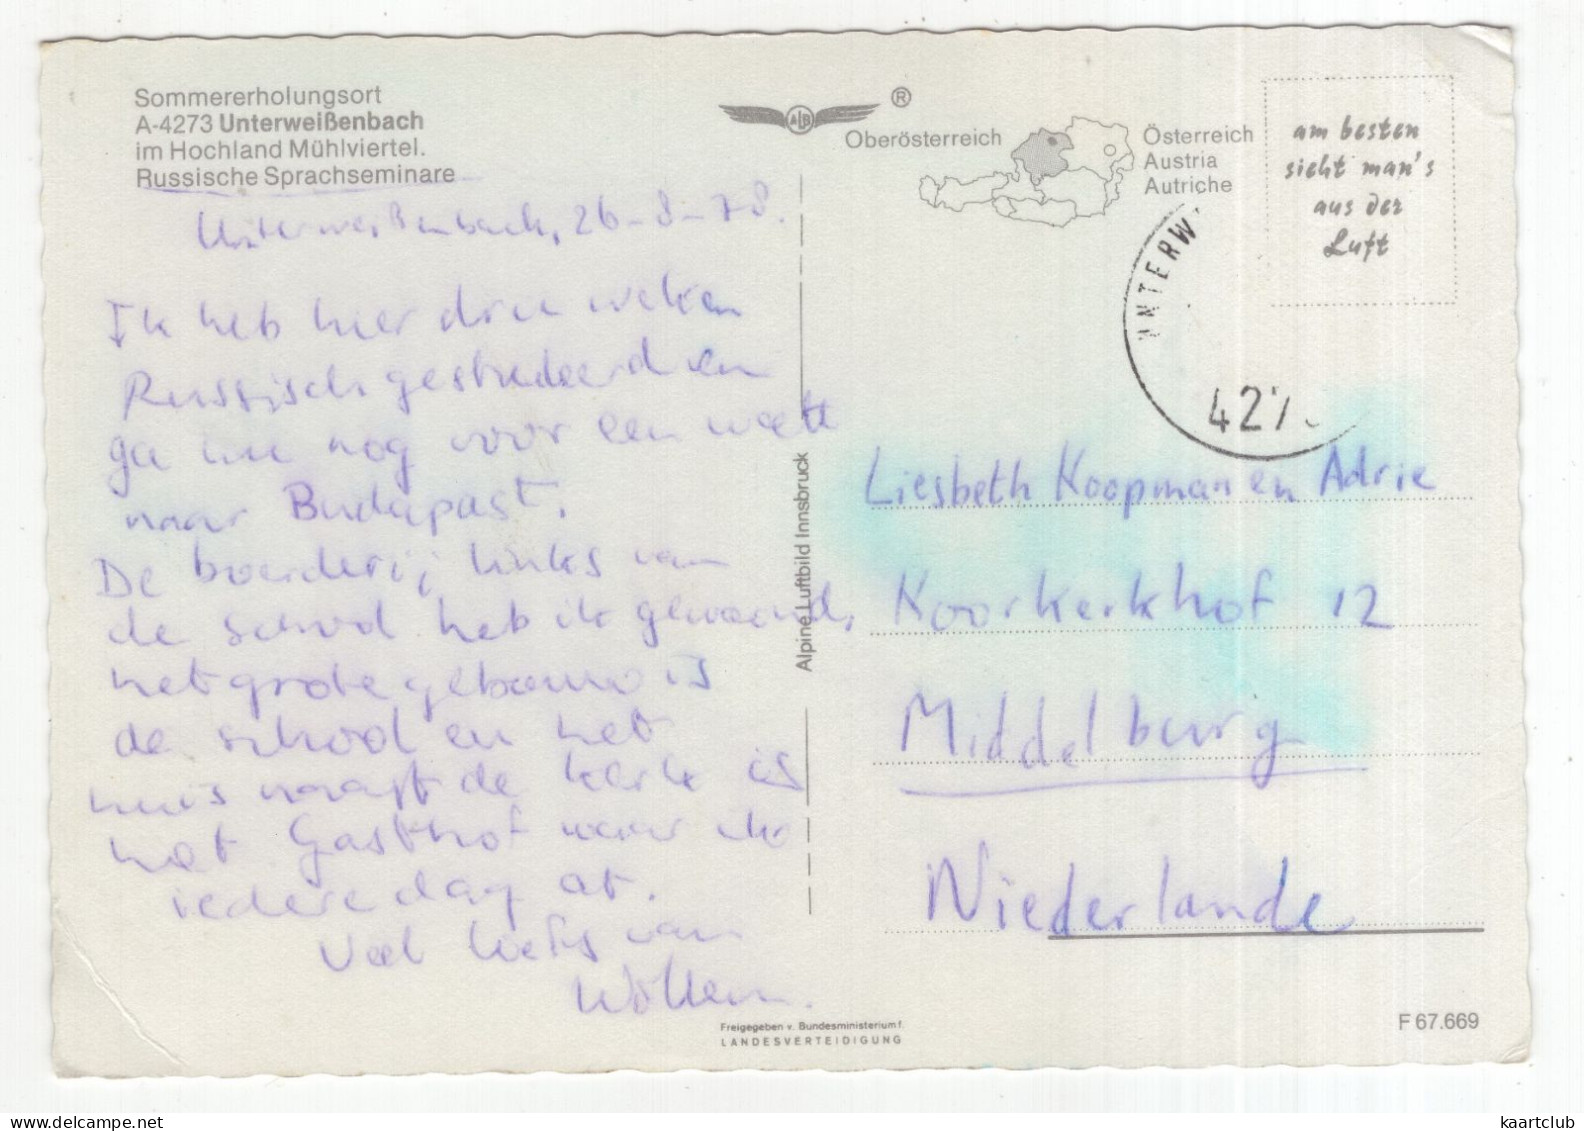 Sommererholungsort
A-4273 Unterweißenbach
im Hochland Mühlviertel.
Russische Sprachseminare
Unterweißenbach, 26-8-78.
Ik heb hier drie weken
Russisch gestudeerd en
ga nu nog voor een week
naar Budapast.
De boerderij links van
de school heb ik gewoond,
het grote gebouw is
de school en het
huis naast de kerk is
het Gasthof waar ik
iedere dag at.
Veel liefs van
Willem.
ALB
®
Oberösterreich
Österreich
Austria
Autriche
am besten
sieht man's
aus der
Luft
UNTERW
427
Alpine Luftbild Innsbruck
Liesbeth Koopman en Adrie
Koorkerkhof 12
Middelburg
Niederlande
Freigegeben v. Bundesministerium f.
LANDESVERTEIDIGUNG
F 67.669
www.delcampe.net
kaartclub